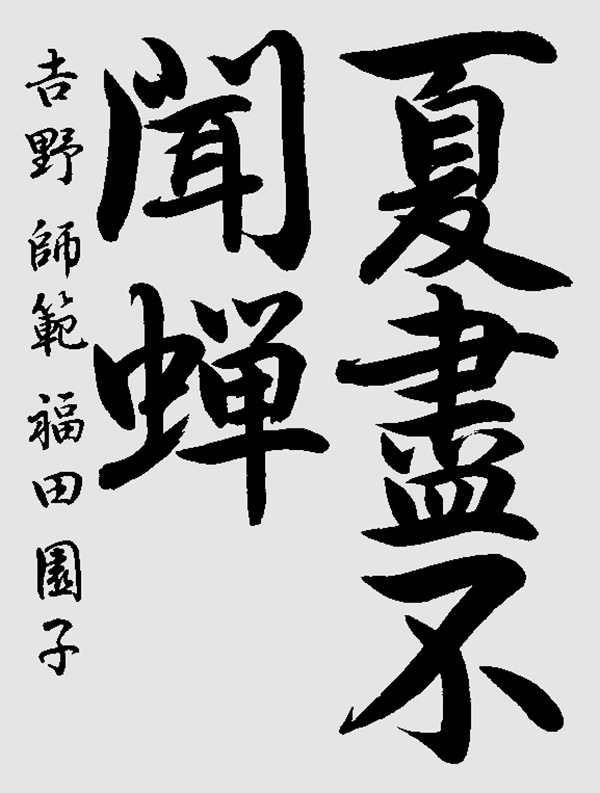 夏盡不
聞蝉
吉野 師範 福田 園子